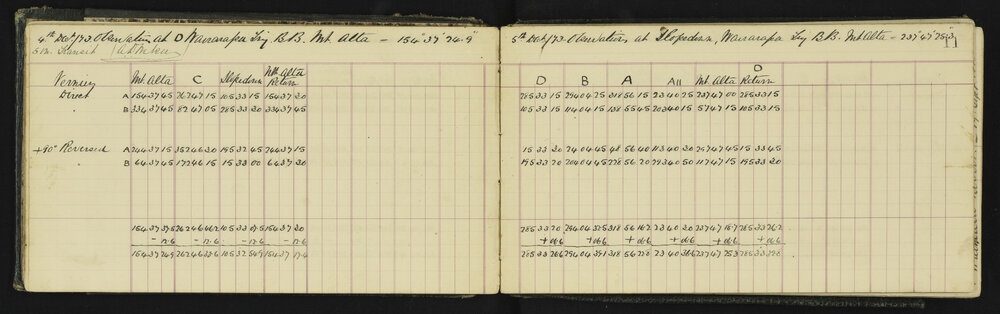 4th Dec/73 Observations at D Wairarapa Trig B.B. Mt Alta – 154° 37' 24.9"
5 in. Transit
Vernier Mt Alta C Slopedown Mt Alta Return
Direct A 154 37 45 262 47 15 105 33 15 154 37 30
" B 334 37 45 82 47 05 285 33 30 334 37 45
+90° Reversed A 244 37 15 352 46 30 195 32 45 244 37 15
B 64 37 45 172 46 15 15 33 00 64 37 30
154 37 37.5 262 46 46.2 105 33 07.5 154 37 30
– 12.6 – 12.6 – 12.6 – 12.6
154 37 24.9 262 46 33.6 105 32 54.9 154 37 17.4
5th Dec/73 Observations at Slopedown, Wairarapa Trig B.B. Mt Alta – 237° 47' 25.3
11
D B A All Mt Alta D Return
285 33 15 294 04 25 318 56 15 23 40 25 237 47 00 285 33 15
105 33 15 114 04 15 138 55 45 203 40 15 57 47 15 105 33 15
15 33 20 24 04 45 48 56 40 113 40 30 237 47 45 15 33 45
195 33 30 204 04 45 228 56 20 293 40 50 117 47 15 195 33 30
285 33 20 294 04 32.5 318 56 16.2 23 40 30 237 47 18.7 285 33 26.2
+ 06.6 + 06.6 + 06.6 + 06.6 + 06.6 + 06.6
285 33 26.6 294 04 39.1 318 56 22.8 23 40 36.6 237 47 25.3 285 33 32.8